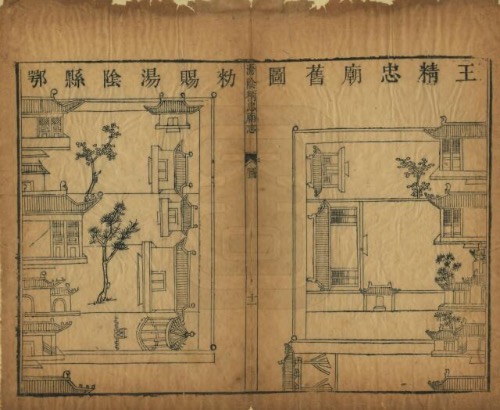 王精忠廟舊圖勅賜湯陰縣鄂
湯陰精忠廟志